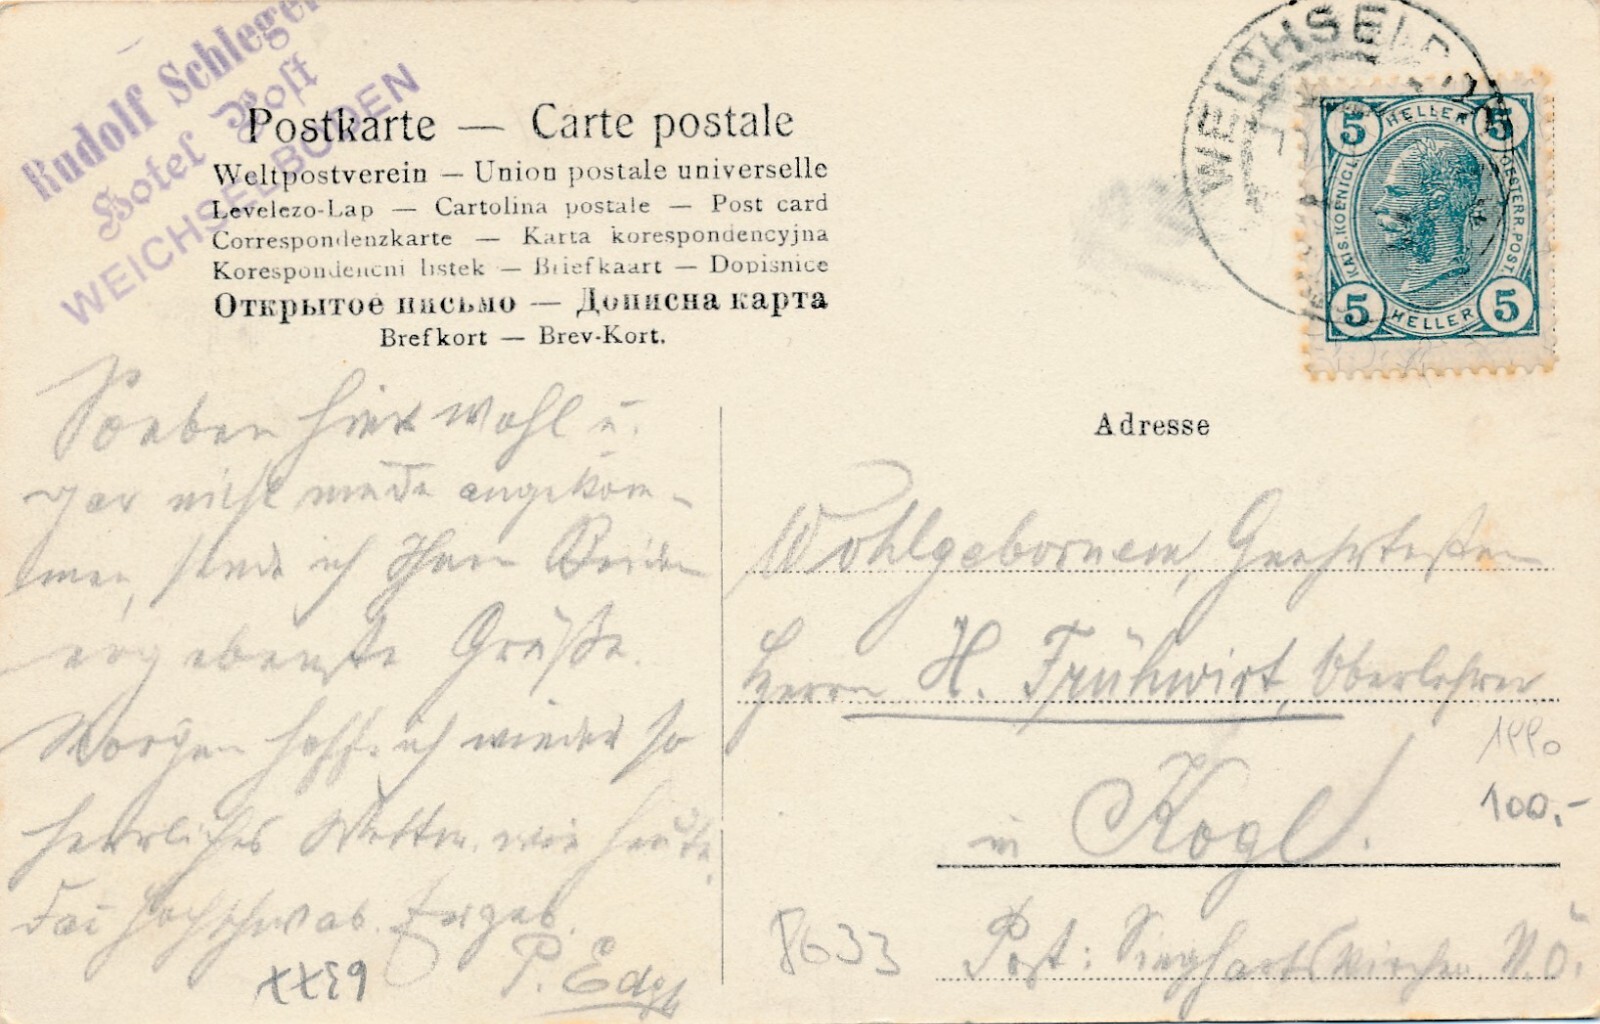 Rudolf Schleger
Hotel Post
WEICHSELBODEN
Postkarte — Carte postale
Weltpostverein — Union postale universelle
Levelezo-Lap — Cartolina postale — Post card
Correspondenzkarte — Karta korespondencyjna
Korespondencni listek — Briefkaart — Dopisnice
Открытое письмо — Дописна карта
Brefkort — Brev-Kort.
WEICHSELBOD
5 HELLER 5
KAIS. KOENIGL.
OESTERR. POST.
5 HELLER 5
Soeben hier wohl u.
gar nicht müde angekom-
men, sende ich Ihnen Beiden
ergebenste Grüße.
Morgen hoff. ich wieder so
herrliches Wetter, wie heute.
Hochschwab. Ergeb.
P.
Adresse
Wohlgebornem, Geehrtesten
Herrn H. Frühwirt, Oberlehrer
in Kogl.
Post: Sieghartskirchen N.Ö.
8633
100,-